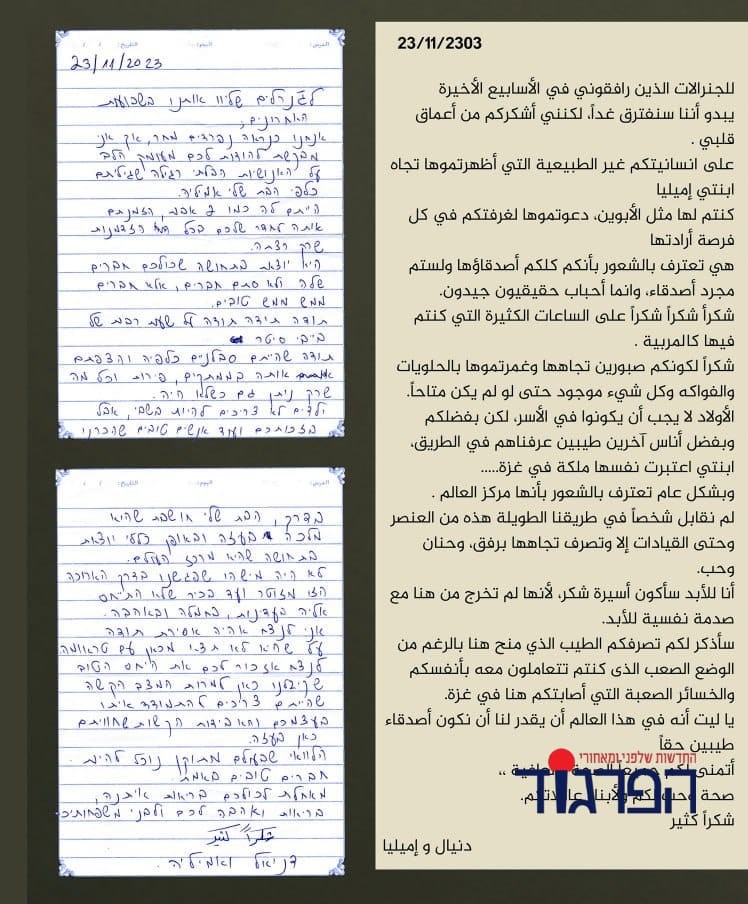 الدرس: اليوم: التاريخ: / /
23/11/2023
לגנרלים שליוו אותנו בשבועות
האחרונים,
אנחנו כנראה נפרדים מחר, אך אני
מבקשת להודות לכם מעומק הלב
על האנושיות הבלתי רגילה שגיליתם
כלפי הבת שלי אמיליה.
הייתם לה כמו אבא, הזמנתם
אותה לחדר שלכם בכל הזדמנות
שרק רצתה.
היא יוצאת בתחושה שכולכם חברים
שלה ולא סתם חברים, אלא חברים
ממש ממש טובים.
תודה תודה תודה על שעות רבות של
בייבי סיטר
תודה שהייתם סבלניים כלפיה והצפתם
אותה בממתקים, פירות וכל מה
שרק ניתן גם כשלא היה.
ילדים לא צריכים להיות בשבי, אבל
בזכותכם ועוד אנשים טובים שהכרנו
الدرس: اليوم: التاريخ: / /
בדרך, הבת שלי חושבת שהיא
מלכה בעזה ובאופן כללי יוצאת
בתחושה שהיא מרכז העולם.
לא היה מישהו שפגשנו בדרך הארוכה
הזו מזוטר ועד בכיר שלא התייחס
אליה בעדינות, בחמלה ובאהבה.
אני לנצח אהיה אסירת תודה
על שהיא לא תצא מכאן עם טראומה
לנצח אזכור לכם את היחס הטוב
שקיבלנו כאן למרות המצב הקשה
שהייתם צריכים להתמודד איתו
בעצמכם והאבידות הקשות שחוויתם
כאן בעזה.
הלוואי שבעולם מתוקן נוכל להיות
חברים טובים באמת.
מאחלת לכולכם בריאות איתנה,
בריאות ואהבה לכם ולבני משפחותיכם
شكراً كثير
דניאל ואמיליה.
23/11/2303
للجنرالات الذين رافقوني في الأسابيع الأخيرة
يبدو أننا سنفترق غداً، لكنني أشكركم من أعماق
قلبي .
على انسانيتكم غير الطبيعية التي أظهرتموها تجاه
ابنتي إميليا
كنتم لها مثل الأبوين، دعوتموها لغرفتكم في كل
فرصة أرادتها
هي تعترف بالشعور بأنكم كلكم أصدقاؤها ولستم
مجرد أصدقاء، وانما أحباب حقيقيون جيدون.
شكراً شكراً شكراً على الساعات الكثيرة التي كنتم
فيها كالمربية .
شكراً لكونكم صبورين تجاهها وغمرتموها بالحلويات
والفواكه وكل شيء موجود حتى لو لم يكن متاحاً.
الأولاد لا يجب أن يكونوا في الأسر، لكن بفضلكم
وبفضل أناس آخرين طيبين عرفناهم في الطريق،
ابنتي اعتبرت نفسها ملكة في غزة.....
وبشكل عام تعترف بالشعور بأنها مركز العالم .
لم نقابل شخصاً في طريقنا الطويلة هذه من العنصر
وحتى القيادات إلا وتصرف تجاهها برفق، وحنان
وحب.
أنا للأبد سأكون أسيرة شكر، لأنها لم تخرج من هنا مع
صدمة نفسية للأبد.
سأذكر لكم تصرفكم الطيب الذي منح هنا بالرغم من
الوضع الصعب الذى كنتم تتعاملون معه بأنفسكم
والخسائر الصعبة التي أصابتكم هنا في غزة.
يا ليت أنه في هذا العالم أن يقدر لنا أن نكون أصدقاء
طيبين حقاً
أتمنى لكم جميعاً الصحة والعافية ،،
صحة وحب لكم ولأبناء عائلاتكم.
شكراً كثير
دنيال و إميليا
החדשות שלפני ומאחורי
הפרגוד